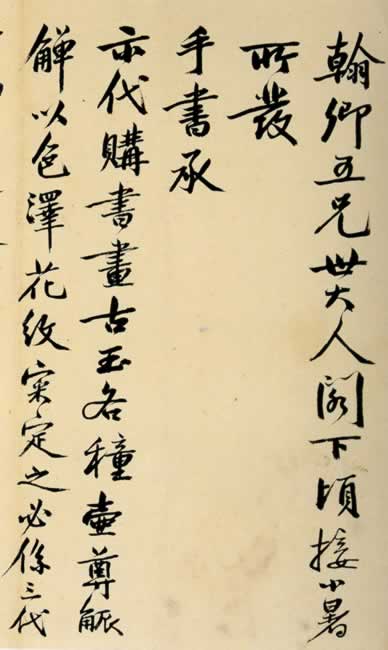 翰卿五兄世大人閣下頃接小暑
所發
手書承
示代購書畫古玉各種壷尊觚
觶以色澤花紋宷定之必係三代